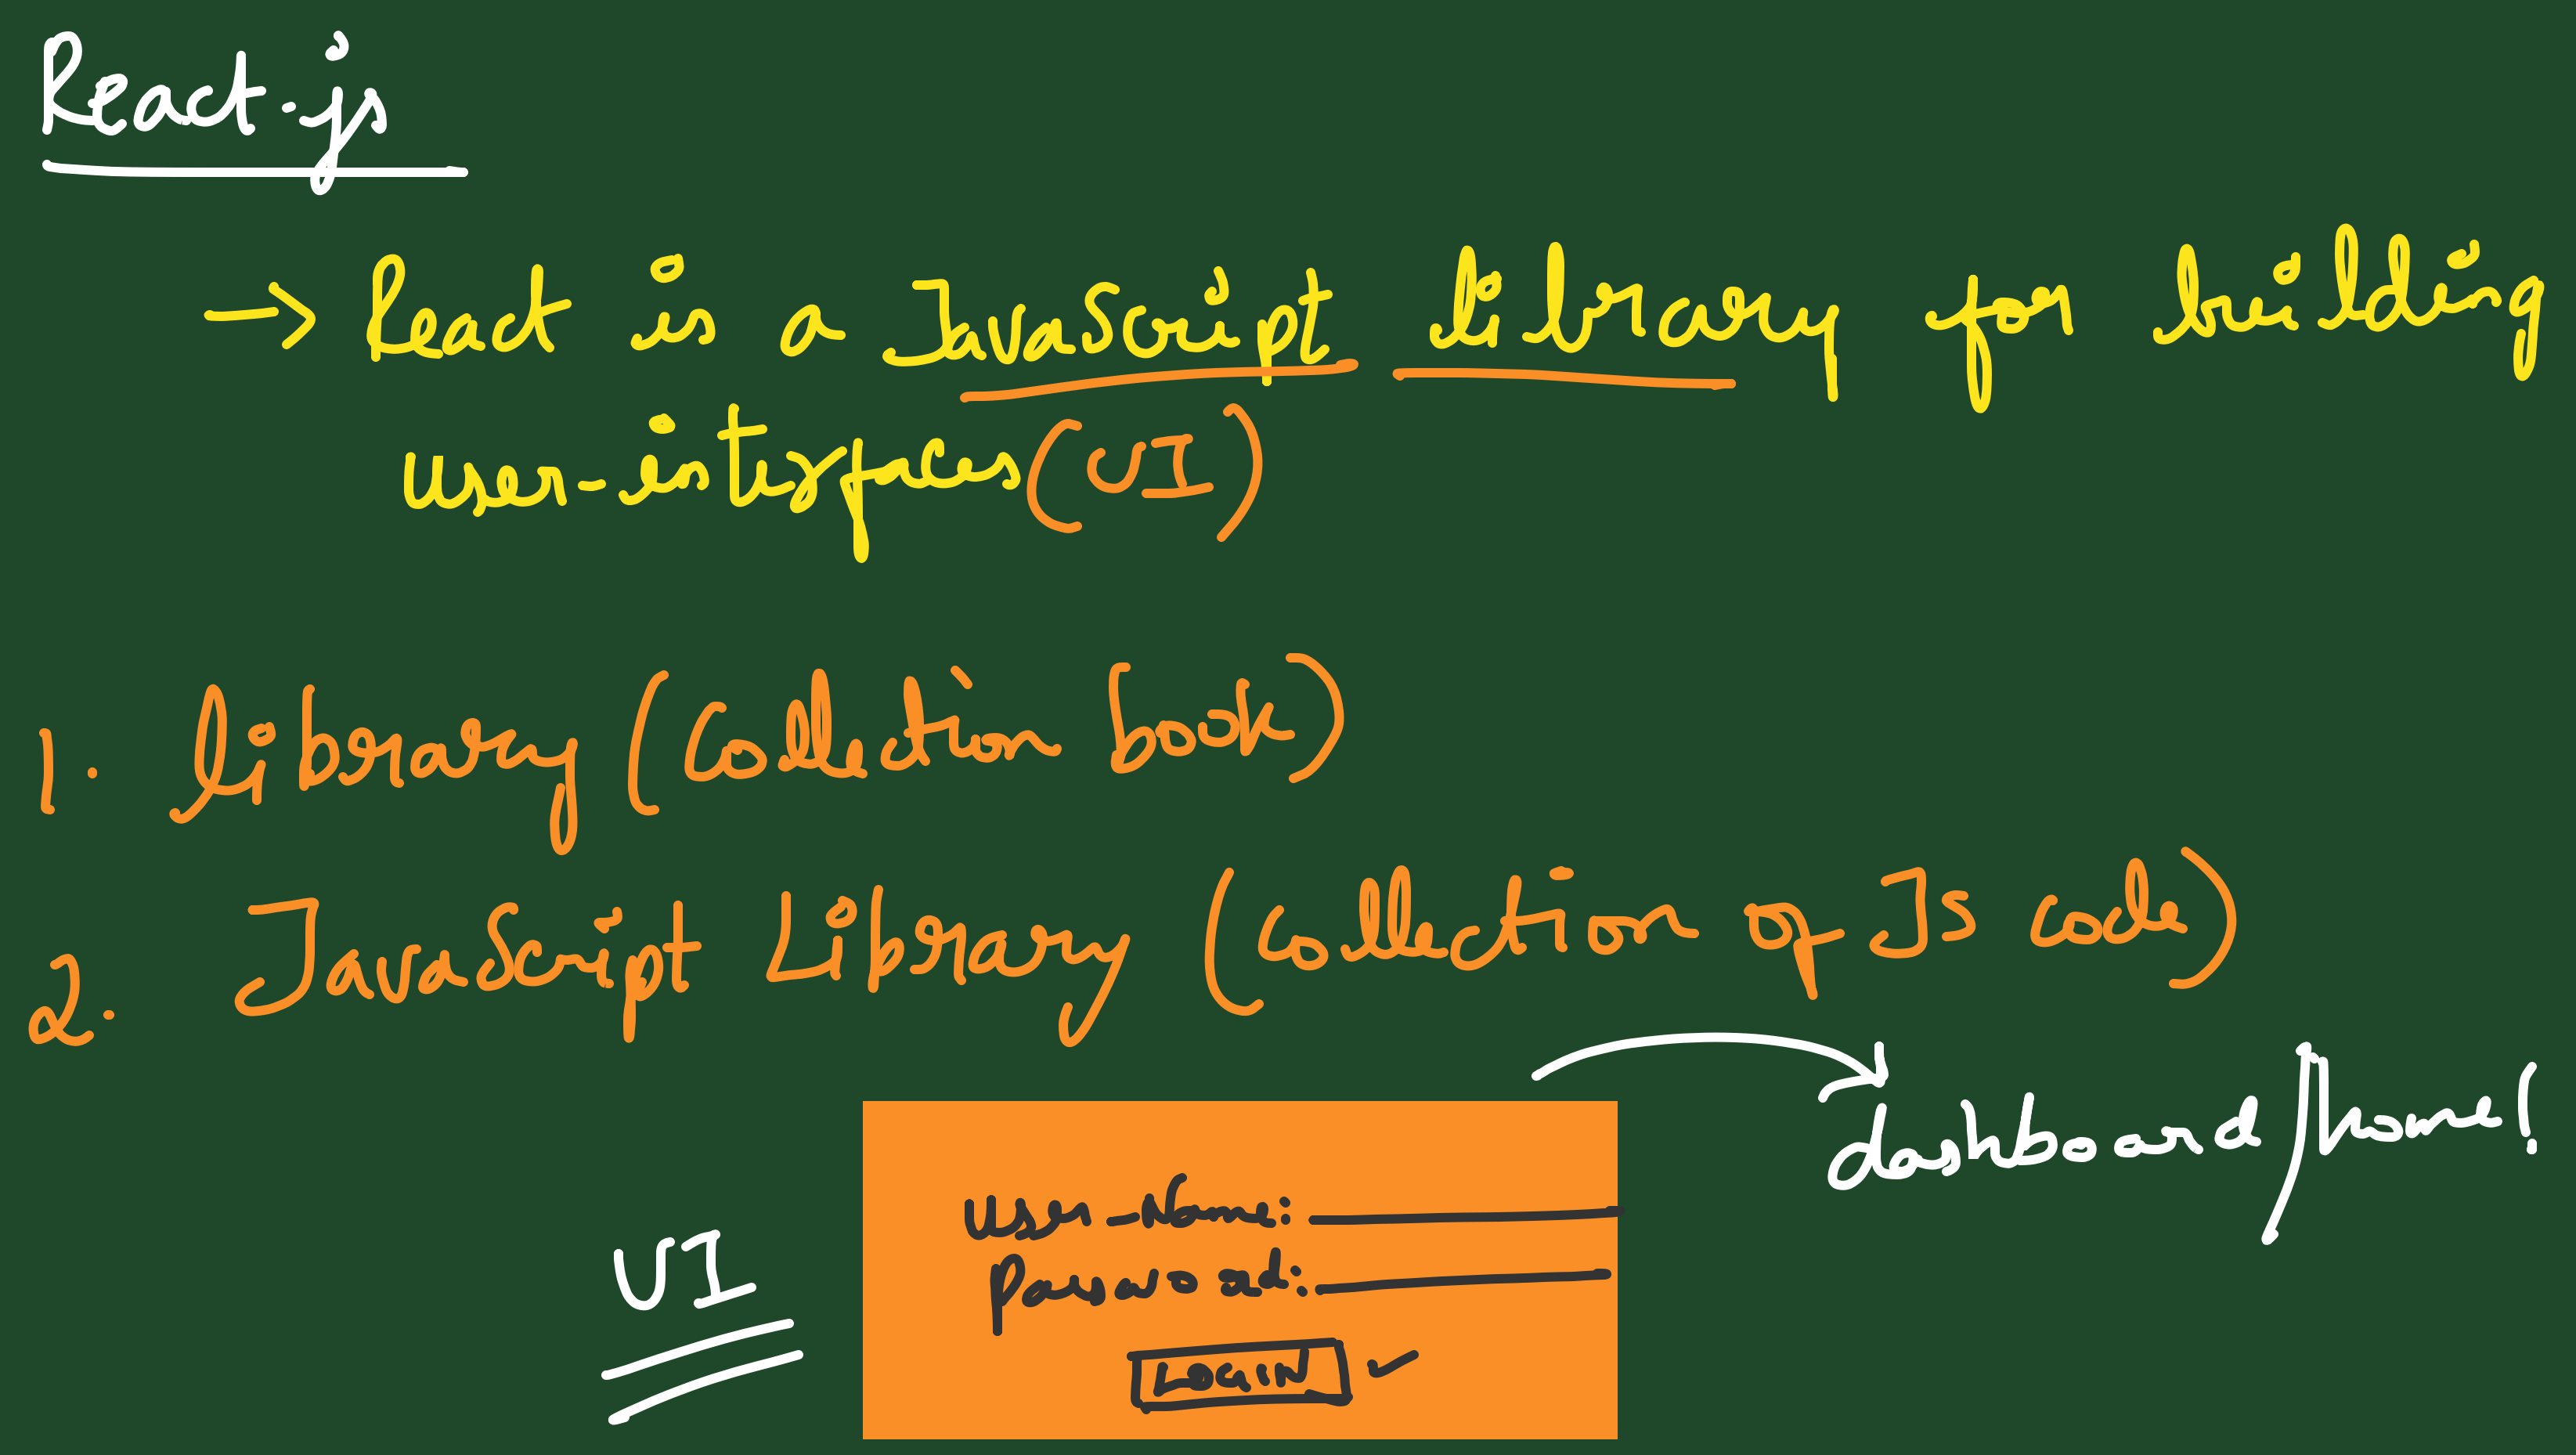 React.js
→ React is a JavaScript library for building
user-interfaces (UI)
1. library (Collection book)
2. JavaScript Library (Collection of Js code)
dashboard/home!
User-Name:
Password:
UI
LOGIN